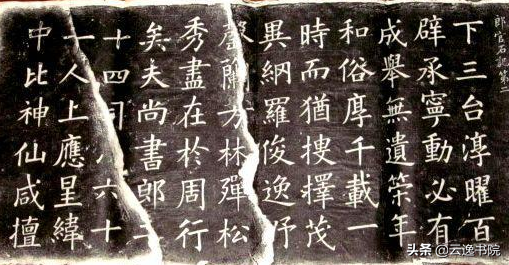 郎官石記第
下三台淳曜百
辟承寧動必有
成舉無遺策年
和俗厚千載一
時而猶搜擇茂
異網羅俊逸野
罄蘭芳林殫松
秀盡在於周行
矣夫尚書郎二
十四司凡六十
一人上應星緯
中比神仙咸擅
头条 @云逸书院